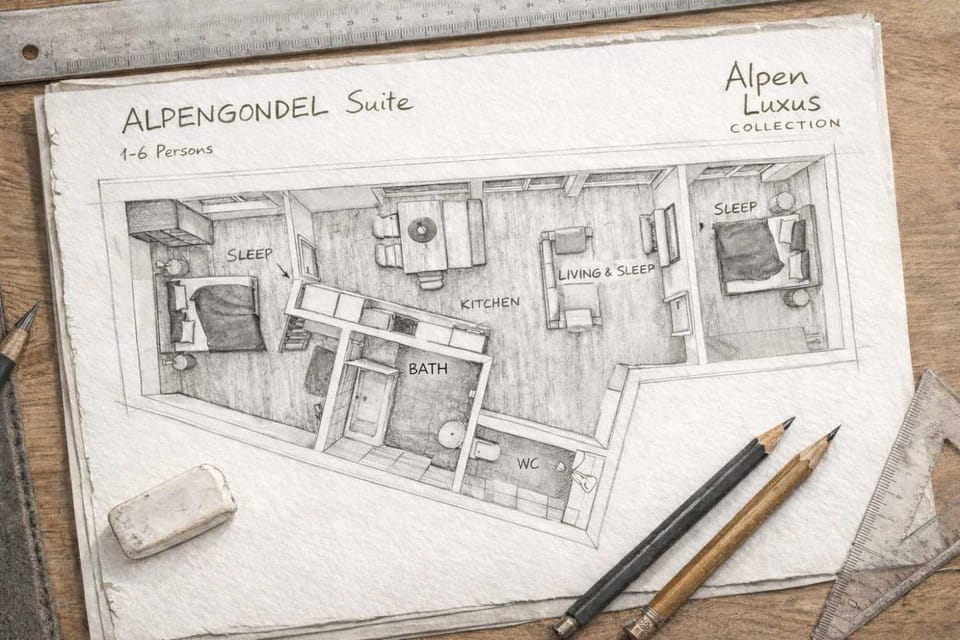 ALPENGONDEL Suite
1-6 Persons
Alpen
Luxus
COLLECTION
SLEEP
SLEEP
LIVING & SLEEP
KITCHEN
BATH
WC